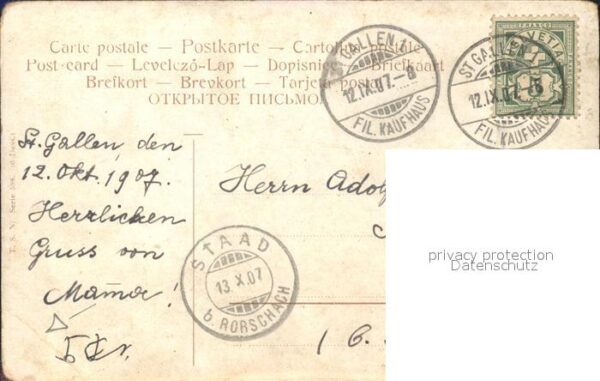 Carte postale – Postkarte – Cartolina postale
Post-card – Levelező-Lap – Dopisnice – Briefkaart
Brefkort – Brevkort – Tarjeta postal
ОТКРЫТОЕ ПИСЬМО
ST. GALLEN 1
12.IX.07.–8
FIL. KAUFHAUS
ST. GALLEN 1
12.IX.07.–8
FIL. KAUFHAUS
FRANCO
HELVETIA
5
T. S. N. Serie
St. Gallen, den
12. Okt. 1907.
Herrlichen
Gruss von
Mama!
Herrn Adolf
STAAD
13 X.07
b. RORSCHACH
privacy protection
Datenschutz